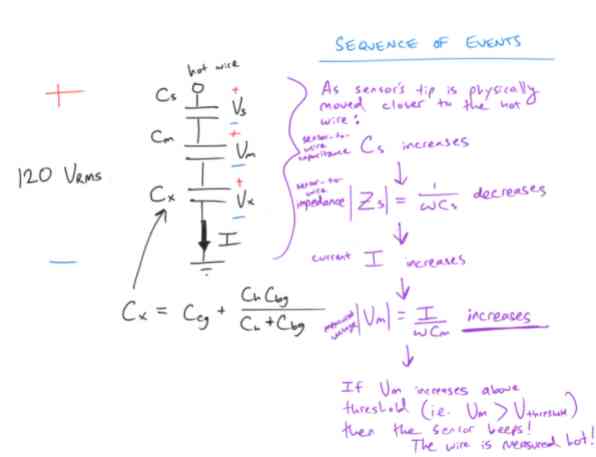 SEQUENCE OF EVENTS
hot wire
+
Cs
+
Vs
-
Cm
+
Vm
-
120 VRMS
Cx
+
Vx
-
I
-
Cx = Ceg + ChCbg / Ch + Cbg
As sensor's tip is physically
moved closer to the hot
wire:
sensor-to-
wire
capacitance Cs increases
sensor-to-wire
impedance |Zs| = 1 / ωCs decreases
current I increases
measured
voltage |Vm| = I / ωCm increases
If Vm increases above
threshold (i.e. Vm > Vthreshold)
then the sensor beeps!
The wire is measured hot!